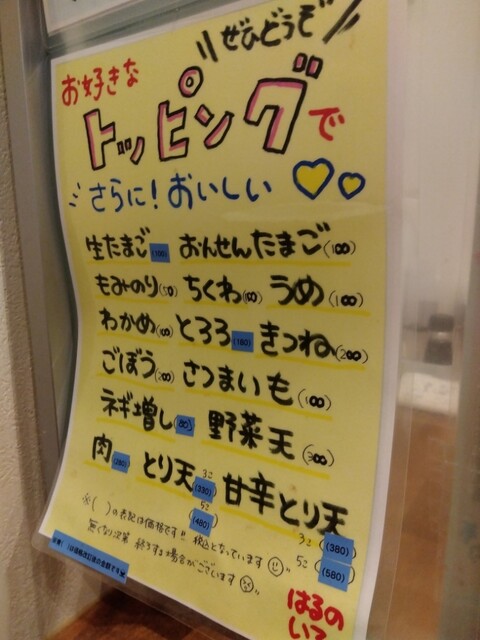 ぜひどうぞ
お好きな
トッピングで
さらに!おいしい
生たまご(100) おんせんたまご(100)
もみのり(50) ちくわ(100) うめ(100)
わかめ(100) とろろ(180) きつね(200)
ごぼう(200) さつまいも(100)
ネギ増し(80) 野菜天(300)
肉(280) とり天 3こ(330) 甘辛とり天
5こ(480) 3こ(380)
※( )の表記は価格です!! 税込となっています 5こ(580)
無くなり次第 終了する場合がございます
は価格改訂後の金額です
はるの
いて